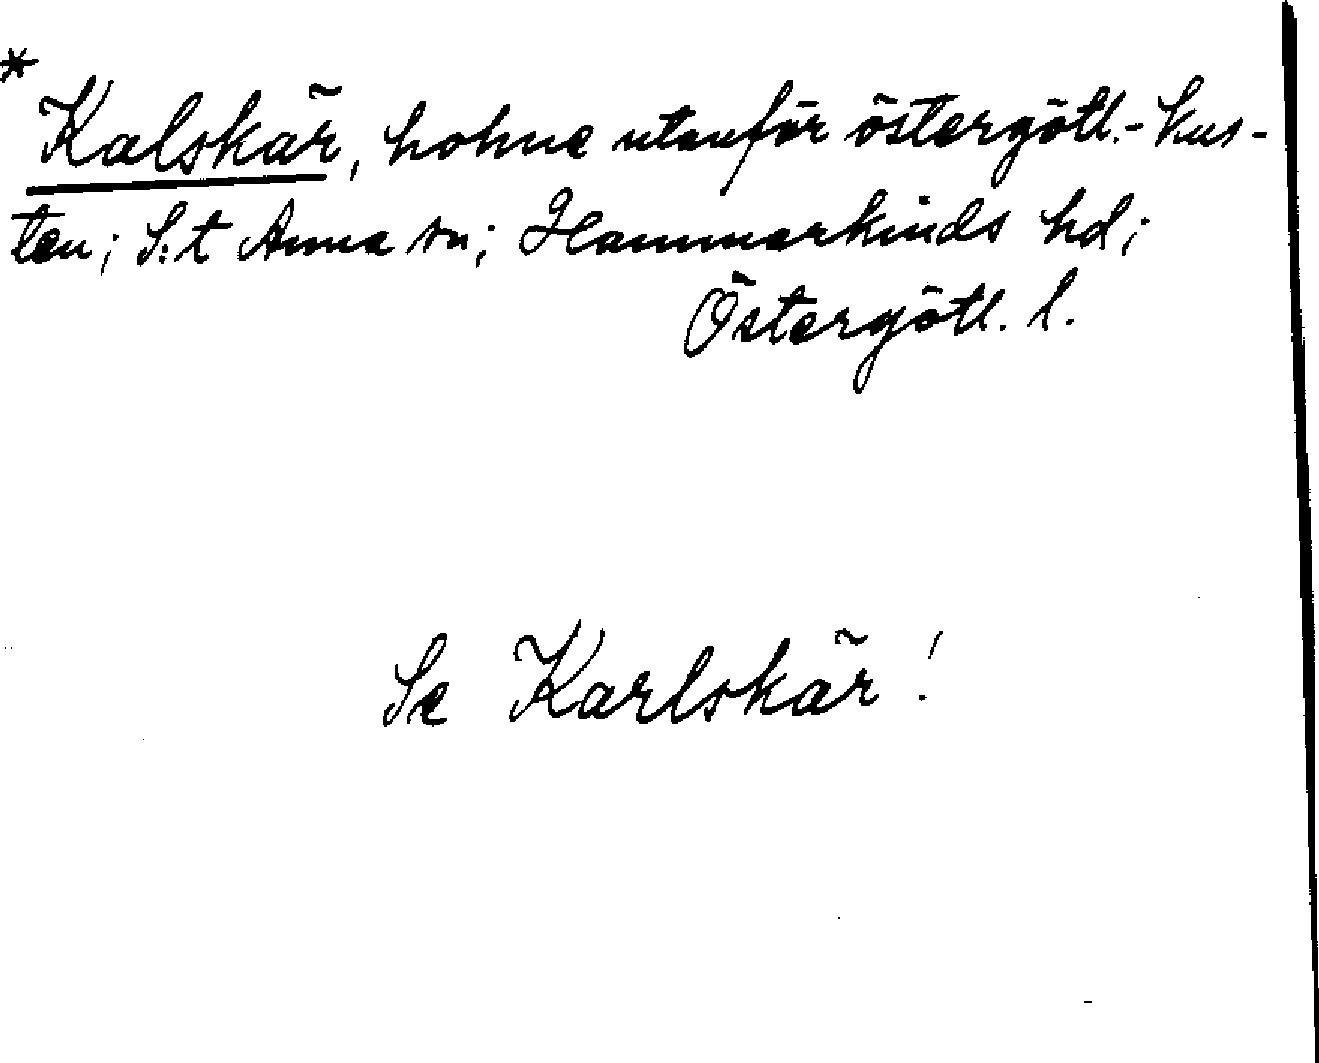 * Kalskär, holme utanför östergötl.-kus-
ten; S:t Anna sn; Hammarkinds hd;
Östergötl. l.
Se Karlskär!